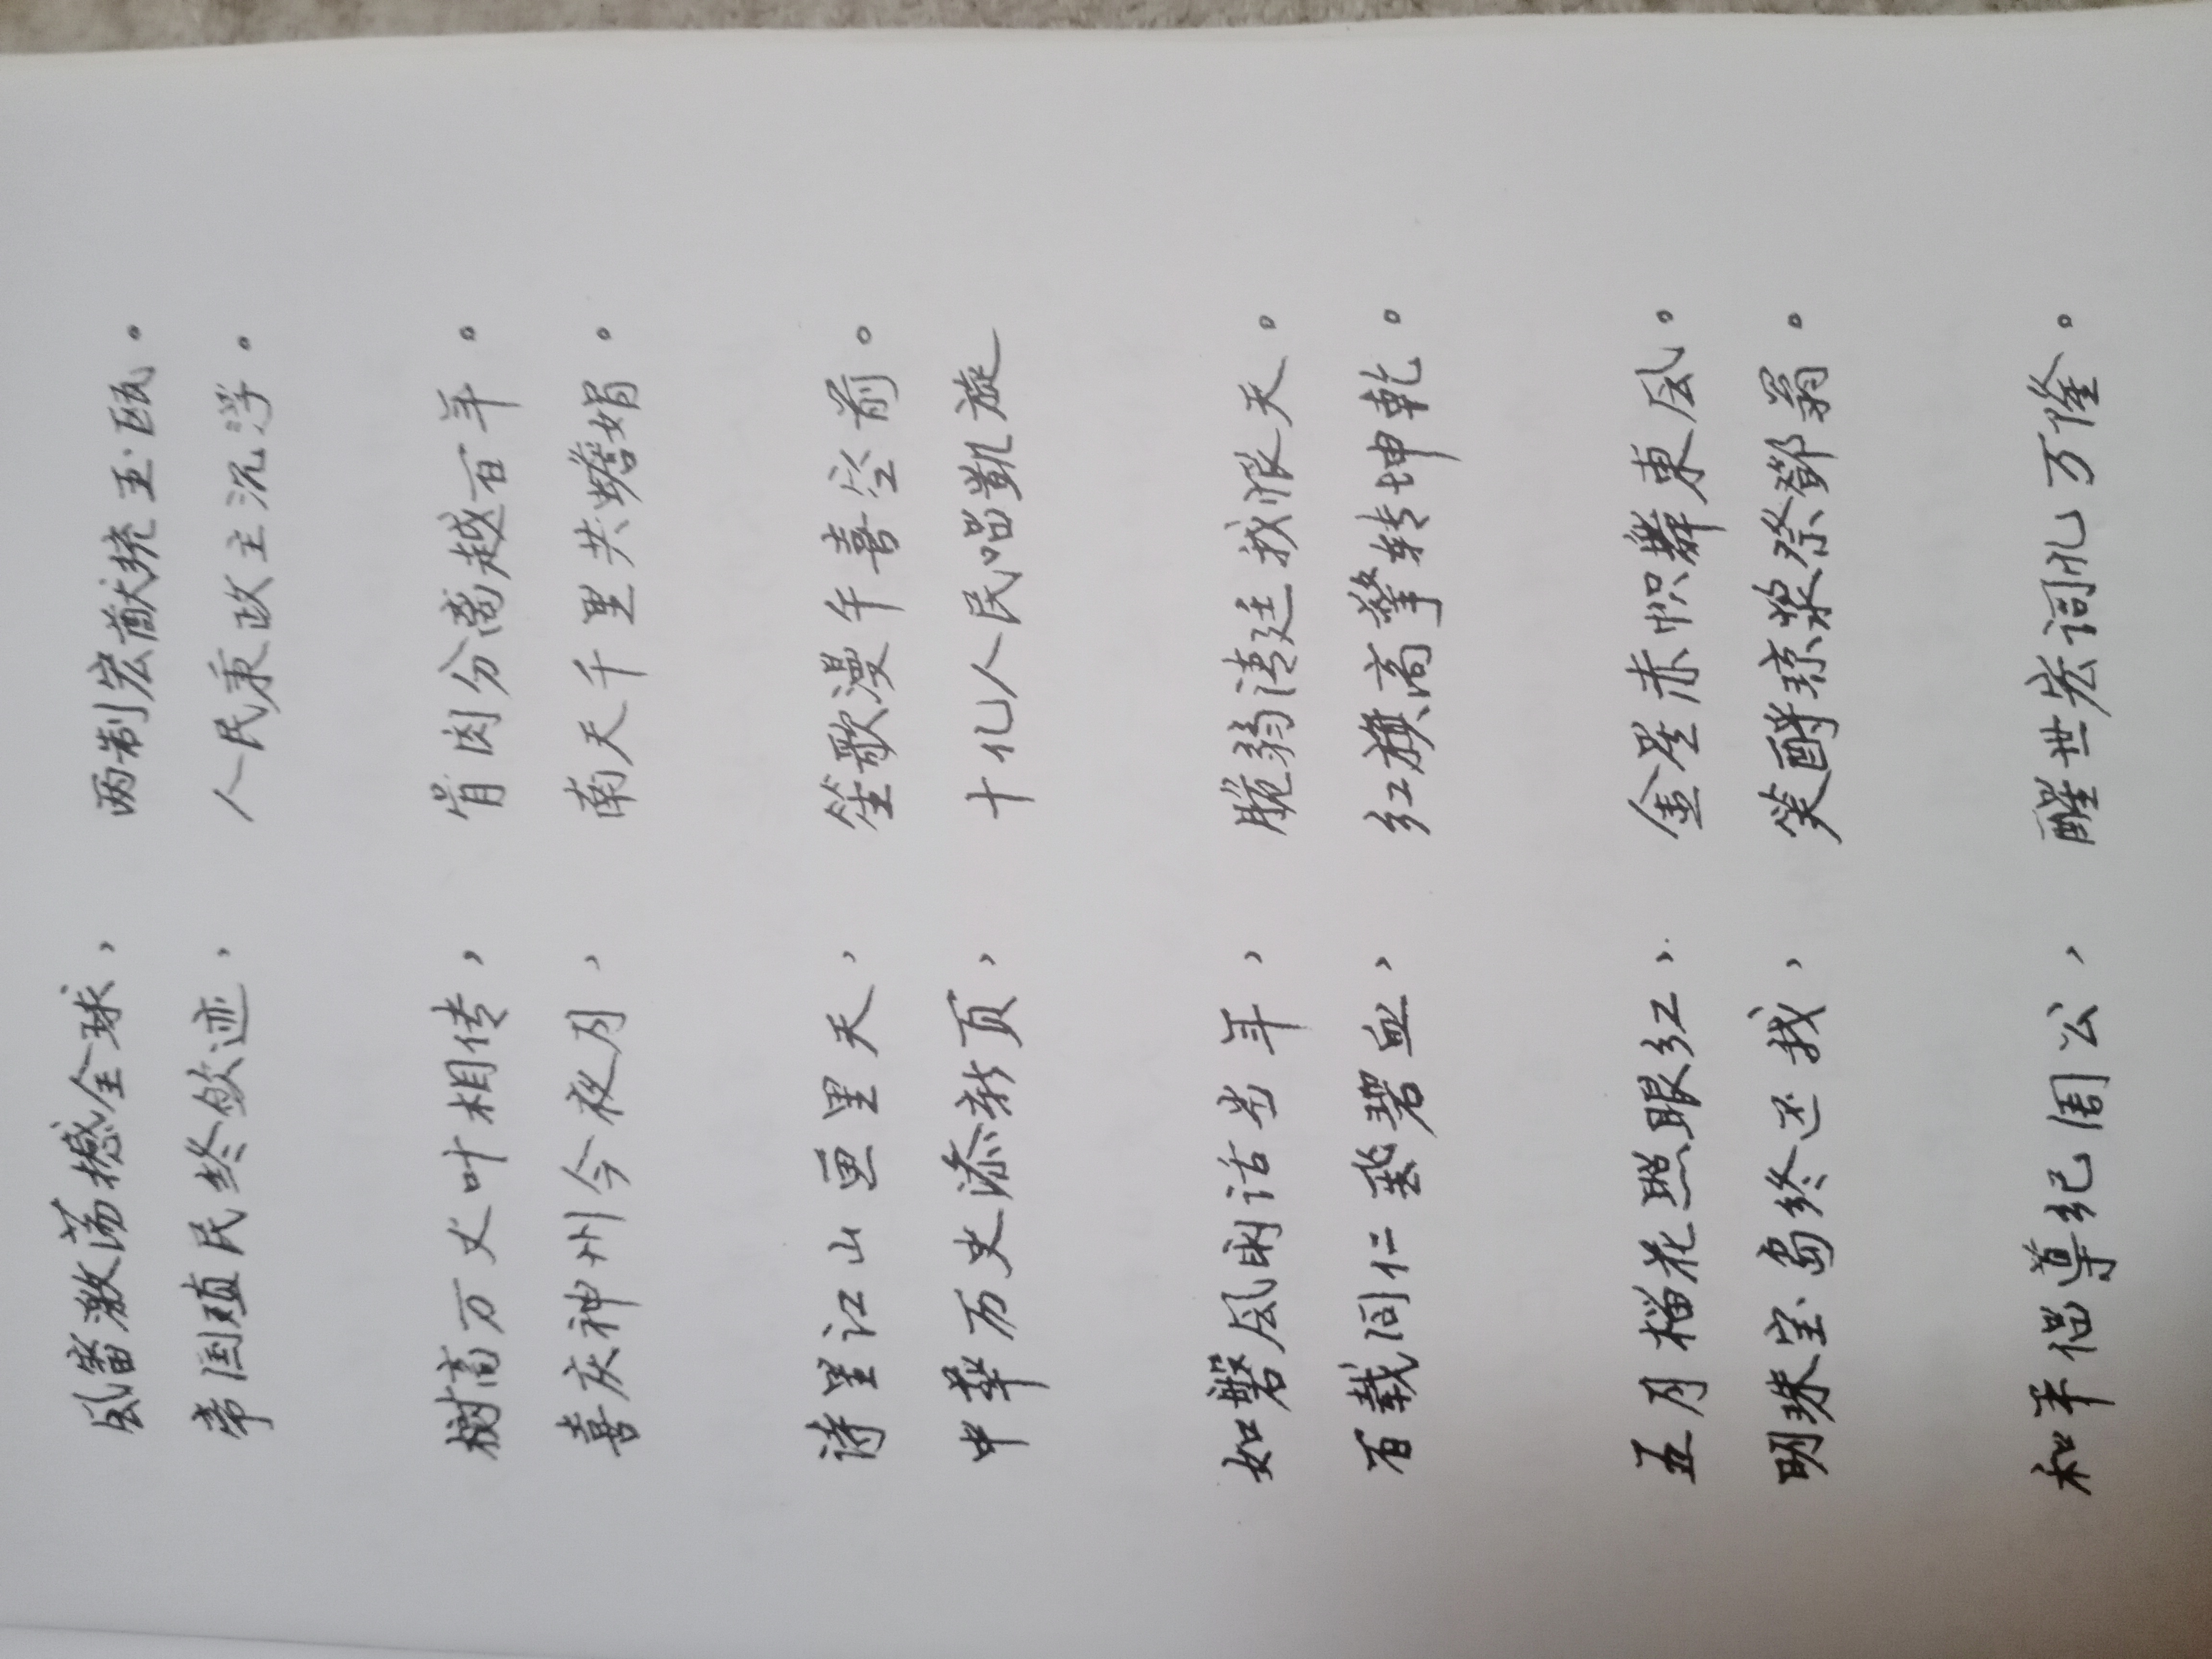 风雷激荡撼全球，两制宏猷统玉瓯。
帝国殖民终敛迹，人民秉政主沉浮。
樹高万丈叶相传，骨肉分离越百年。
喜庆神州今夜月，南天千里共蟾娟。
诗里江山画里天，笙歌漫午喜空前。
中華历史添新页，十亿人民唱凱旋
如磐风雨话当年，脆弱清廷我恨天。
百载同仁飛碧血，红旗高擎转坤乾。
五月榴花照眼红，金星赤帜舞東风。
明珠宝岛终还我，笑酹琼浆祭鄧翁。
和平倡導纪周公，醒世宏词兆万隆。